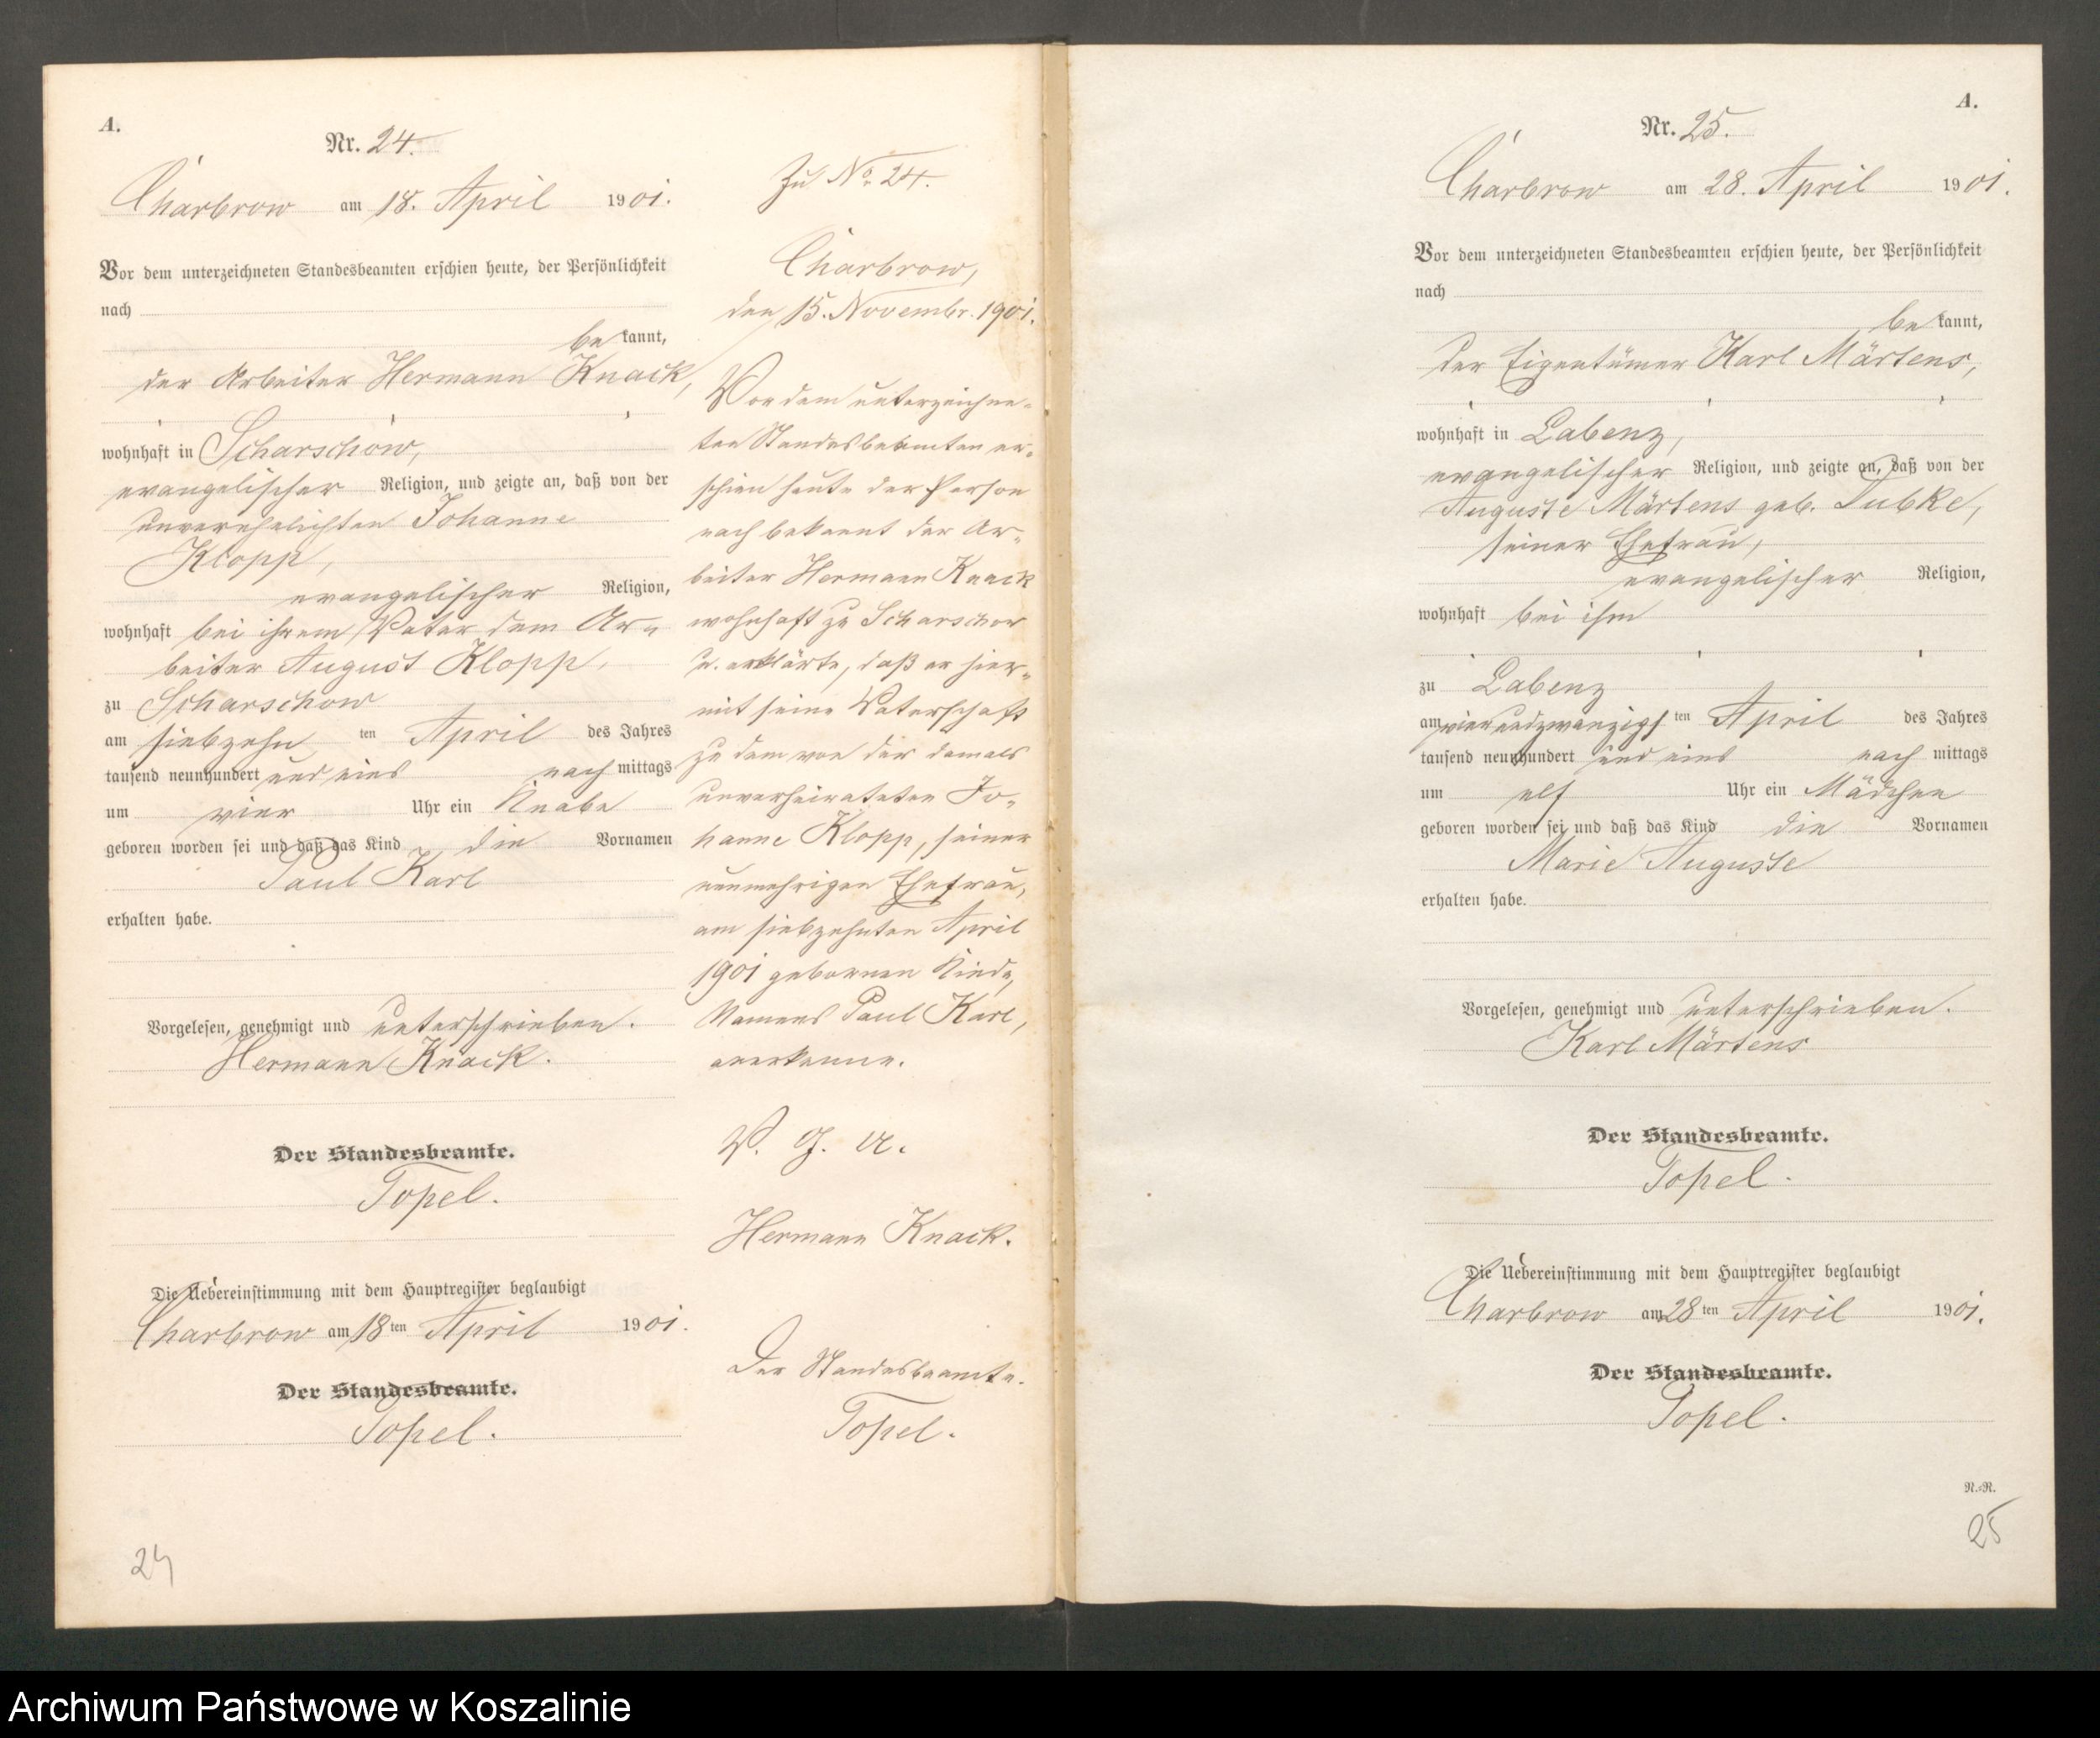 A.
Nr. 24.
Charbrow am 18. April 1901.
Vor dem unterzeichneten Standesbeamten erschien heute, der Persönlichkeit
nach
bekannt,
der Arbeiter Hermann Knack,
wohnhaft in Scharschow,
evangelischer Religion, und zeigte an, daß von der
unverehelichten Johanne
Klopp,
evangelischer Religion,
wohnhaft bei ihrem Vater dem Ar-
beiter August Klopp,
zu Scharschow
am siebzehn ten April des Jahres
tausend neunhundert und eins nach mittags
um vier Uhr ein Knabe
geboren worden sei und daß das Kind die Vornamen
Paul Karl
erhalten habe.
Vorgelesen, genehmigt und unterschrieben.
Hermann Knack.
Der Standesbeamte.
Topel.
Die Uebereinstimmung mit dem Hauptregister beglaubigt
Charbrow am 18 ten April 1901.
Der Standesbeamte.
Topel.
24
Zu No. 24.
Charbrow,
den 15. Novembr. 1901.
Vor dem unterzeichne-
ten Standesbeamten er-
schien heute der Person
nach bekannt der Ar-
beiter Hermann Knack
wohnhaft zu Scharschow
u. erklärte, daß er hier-
mit seine Vaterschaft
zu dem von der damals
unverheirateten Jo-
hanne Klopp, seiner
nunmehrigen Ehefrau,
am siebzehnten April
1901 gebornen Kinde,
Namens Paul Karl,
anerkenne.
V. g. u.
Hermann Knack.
Der Standesbeamte.
Topel.
A.
Nr. 25.
Charbrow am 28. April 1901.
Vor dem unterzeichneten Standesbeamten erschien heute, der Persönlichkeit
nach
bekannt,
der Eigentümer Karl Märtens,
wohnhaft in Labenz,
evangelischer Religion, und zeigte an, daß von der
Auguste Märtens geb. Lubke,
seiner Ehefrau,
evangelischer Religion,
wohnhaft bei ihm
zu Labenz
am vierundzwanzigs ten April des Jahres
tausend neunhundert und eins nach mittags
um elf Uhr ein Mädchen
geboren worden sei und daß das Kind die Vornamen
Marie Auguste
erhalten habe.
Vorgelesen, genehmigt und unterschrieben.
Karl Märtens
Der Standesbeamte.
Topel.
Die Uebereinstimmung mit dem Hauptregister beglaubigt
Charbrow am 28 ten April 1901.
Der Standesbeamte.
Topel.
N.-R.
25
Archiwum Państwowe w Koszalinie